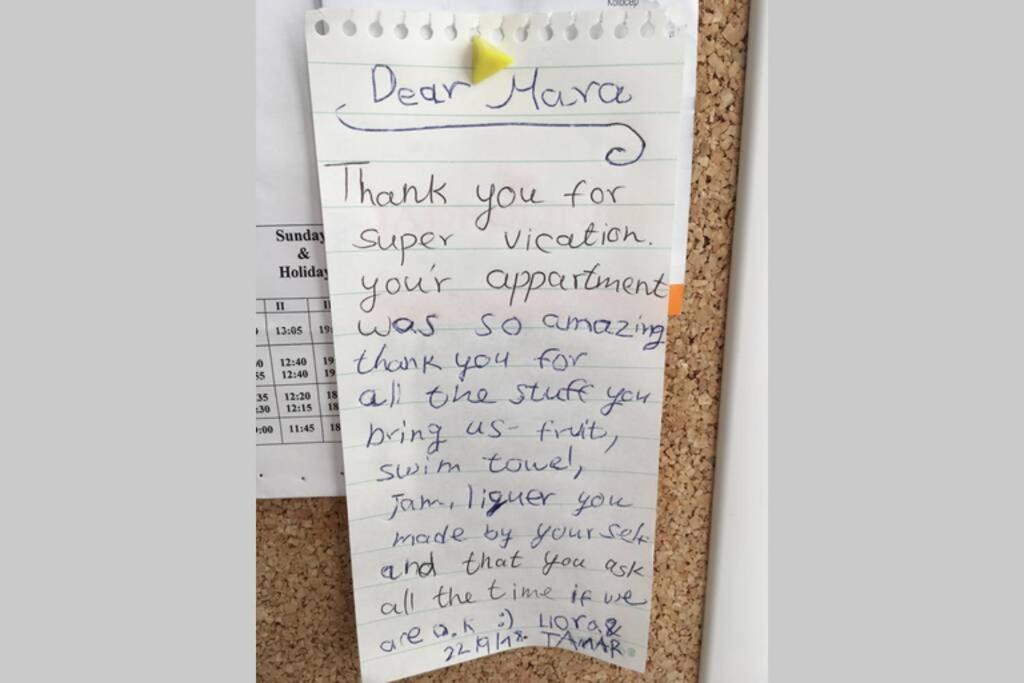 Kolocep
Dear Mara
Thank you for
super vication.
you'r appartment
was so amazing
thank you for
all the stuff you
bring us- fruit,
swim towel,
jam, liquer you
made by your self
and that you ask
all the time if we
are o.k :) LIORA &
22/9/18. TAMAR.
Sunday
&
Holiday
II
13:05 19:
12:40 19
55 12:40 19
35 12:20 18
:30 12:15 18
:00 11:45 18